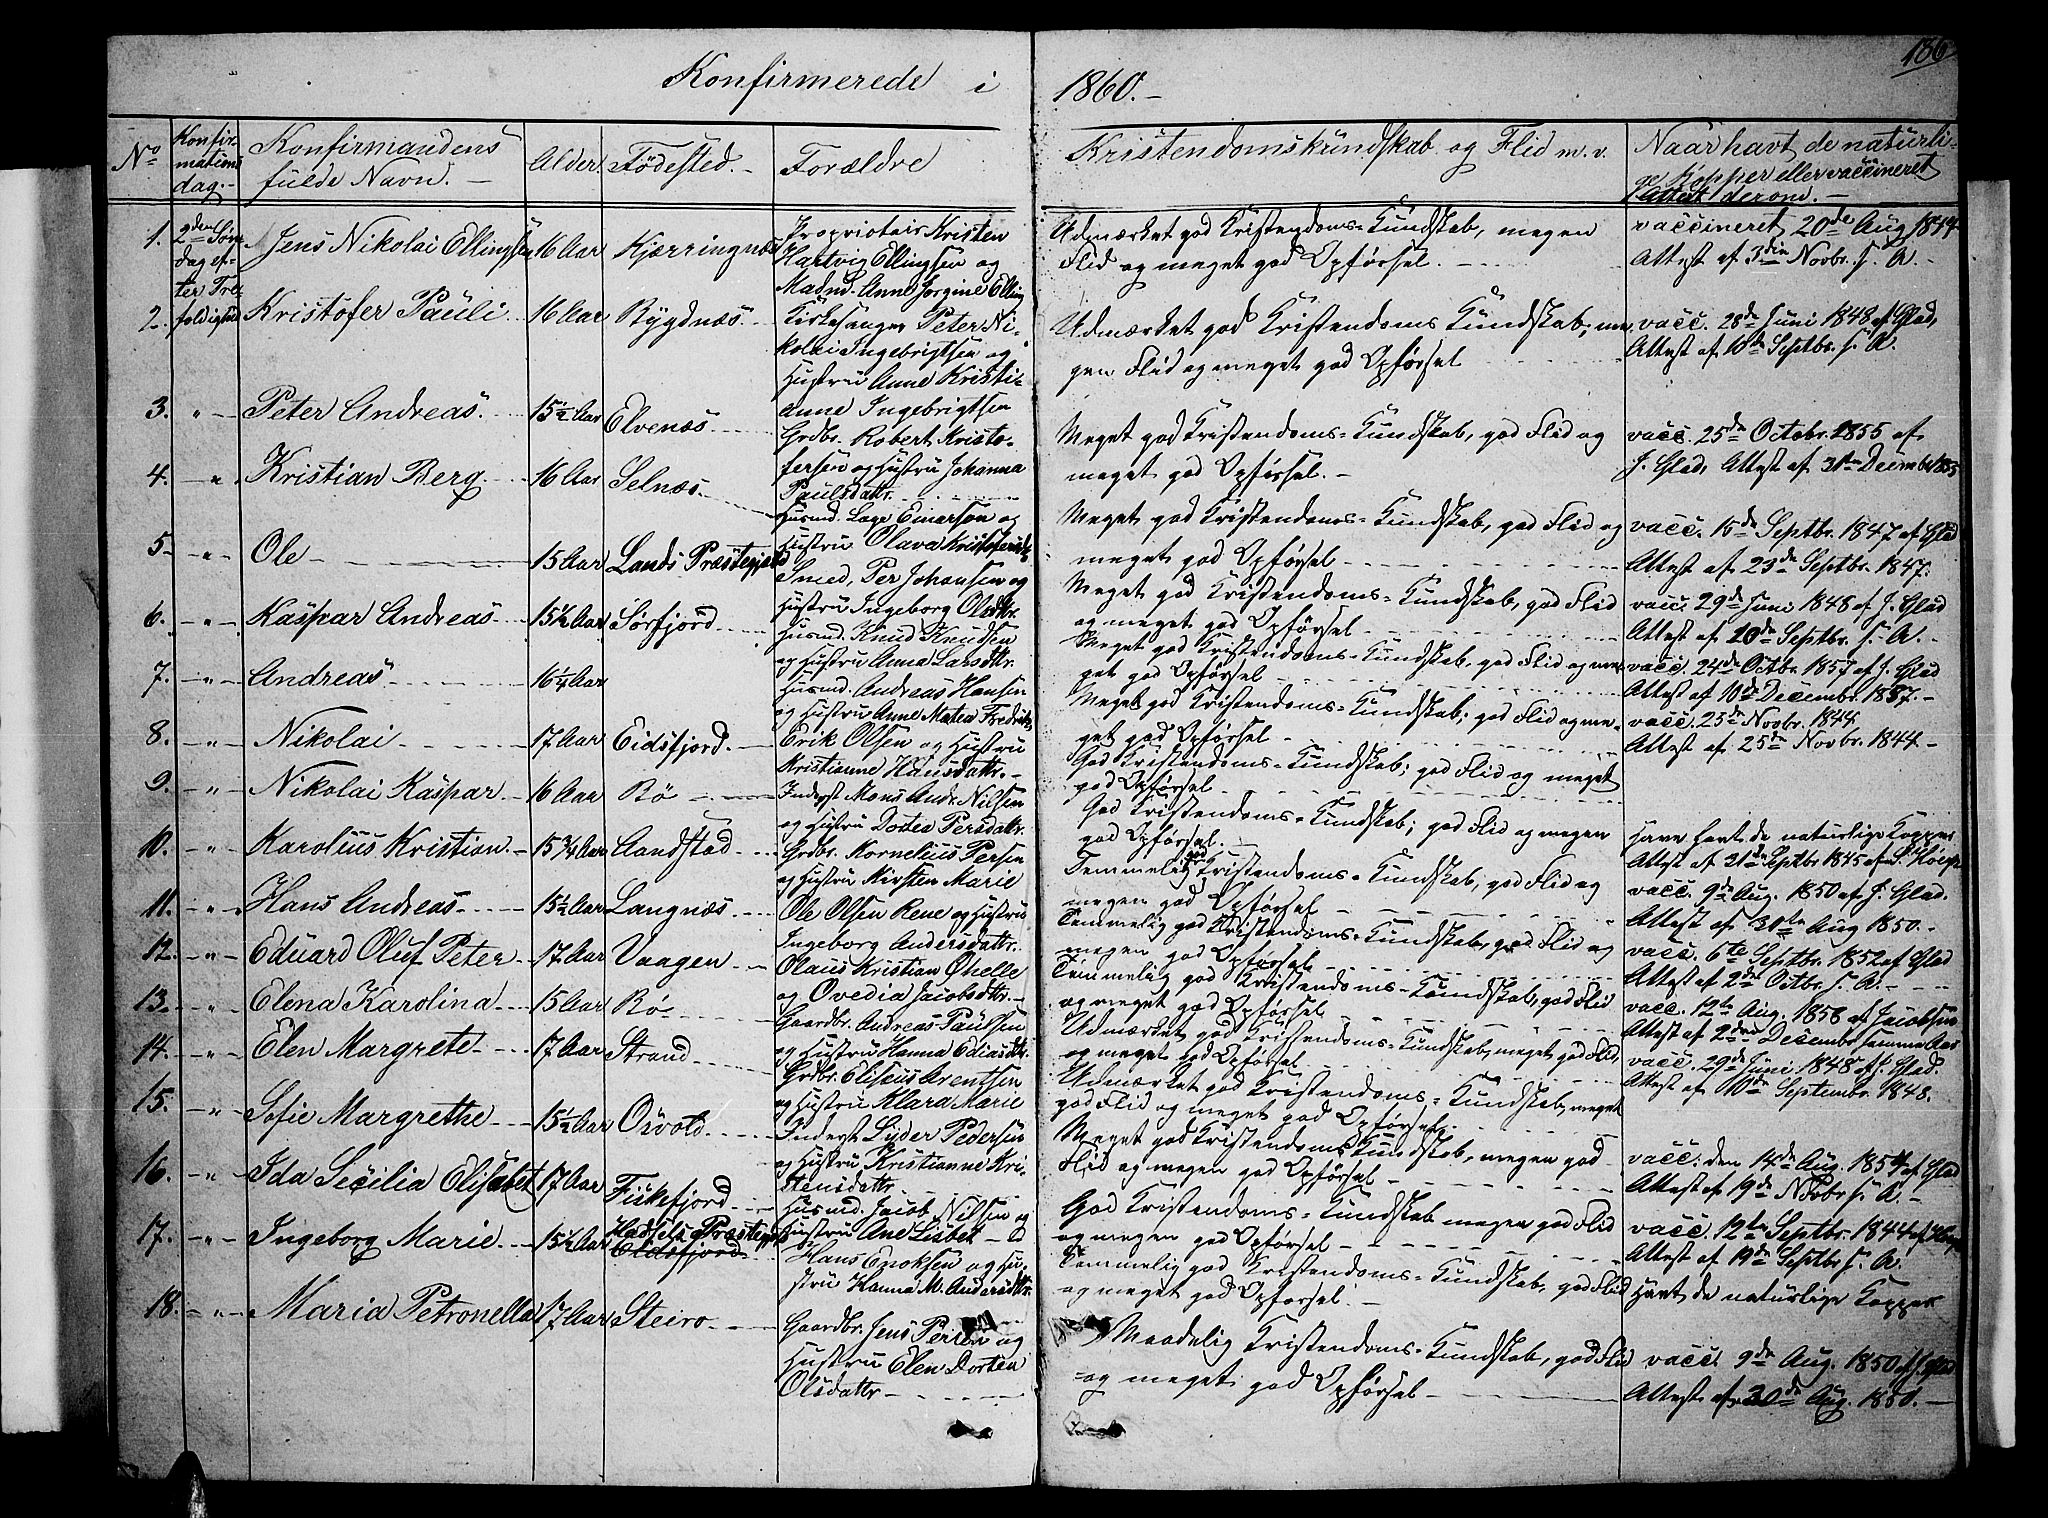 186
Konfirmerede i 1860.-
No
Konfir-
mations
dag.-
Konfirmandens
fulde Navn.-
Alder.
Fødested.-
Forældre
Kristendomskundskab og Flid m. v.
Naar havt de naturli-
ge Kopper eller vaccineret
Attest derom.-
1. 2den Søn-
dag ef-
ter Tre-
foldighed
Jens Nikolai Ellingsen 16 Aar Kjærringnæs
Proprietair Kristen
Hartvig Ellingsen og
Madm. Anne Jorgine Elling
Udmærket god Kristendoms-Kundskab, megen
Flid og meget god Opførsel.
vaccineret 20de Aug 1844
Attest af 3die Novbr. s. A.-
2. Kristofer Pauli 16 Aar Bygdnæs.
Kirkesanger Peter Ni-
kolai Ingebrigtsen og
Hustru Anne Kristi-
anne Ingebrigtsen
Udmærket god Kristendoms Kundskab; me-
gen Flid og meget god Opførsel
vacc. 28de Juni 1848 af Glad,
Attest af 10de Septbr. s. A.
3. " Peter Andreas. 15½ Aar Elvenæs
Grdbr. Robert Kristo-
fersen og Hustru Johanna
Paulsdattr.
Meget god Kristendoms-Kundskab, god Flid og
meget god Opførsel.-
vacc. 25de Octobr. 1855 af
J. Glad, Attest af 31te Decembr 1855
4. " Kristian Berg. 16 Aar Selnæs.
Husmd. Lage Einarsen og
Hustru Olava Kristofersdtr
Meget god Kristendoms-Kundskab, god Flid og
meget god Opførsel
vacc. 15de Septbr. 1847 af Glad
Attest af 23de Septbr. 1847.
5. " Ole 15 Aar Lands Præstegjæld
Smed, Per Johansen og
Hustru Ingeborg Olsdtr.
Meget god Kristendoms-Kundskab, god Flid
og meget god Opførsel
vacc. 29de Juni 1848 af J. Glad
Attest af 10de Septbr. s. A.
6. " Kaspar Andreas 15½ Aar Sørfjord
Husmd. Knud Knudsen
og Hustru Anna Larsdttr.
Meget god Kristendoms-Kundskab, god Flid og me-
get god Opførsel
vacc. 24de Octbr. 1857 af J. Glad
Attest af 10de Decembr. 1857.-
7. " Andreas 16¼ Aar
Husmd. Andreas Hansen
og Hustru Anne Matea Fredriks
Meget god Kristendoms-Kundskab; god Flid og me-
get god Opførsel-
vacc. 25de Novbr. 1844
Attest af 25de Novbr. 1844.-
8. " Nikolai 17 Aar Eidsfjord.
Erik Olsen og Hustru
Kristianne Hansdattr.-
God Kristendoms-Kundskab; god Flid og meget
god Opførsel.
9. " Nikolai Kaspar 16 Aar Bø
Inderst Mons Andr. Nilsen
og Hustru Dortea Persdattr.
God Kristendoms-Kundskab; god Flid og megen
god Opførsel.-
Have havt de naturlige Kopper
Attest af 21de Septbr 1845 af
10. " Karolius Kristian 15¾ Aar Sandstad
Grdbr. Kornelius Persen
og Hustru Kirsten Marie
Temmelig god Kristendoms-Kundskab, god Flid og
megen god Opførsel
vacc. 9de Aug. 1850 af J. Glad.
Attest af 31te Aug 1850.-
11. " Hans Andreas 15½ Aar Langnæs
Ole Olsen Rene og Hustru
Ingeborg Andersdattr.
Temmelig god Kristendoms-Kundskab, god Flid og
megen god Opførsel.
vacc. 6te Septbr. 1852 af Glad
Attest af 2den Octbr. s. A.
12. " Eduard Oluf Peter 17 Aar Vaagen
Olaus Kristian Qvelle
og Ovedia Jacobsdttr.
Temmelig god Kristendoms-Kundskab, god Flid
og meget god Opførsel
vacc. 12te Aug. 1858 af Jacobsen
Attest af 2den Decembr samme Aar
13. " Elena Karolina 15 Aar Bø
Gaardbr. Andreas Paulsen
og Hustru Hanna Ediasdtr
Udmærket god Kristendoms-Kundskab, meget god Flid,
og meget god Opførsel
vacc. 29de Juni 1848 af J. Glad.
Attest af 10de Septembr. 1848.
14. " Elen Margrete 17 Aar Strand
Grdbr. Eliseus Arentsen
og Hustru Klara Marie
Udmærket god Kristendoms-Kundskab, meget
god Flid og meget god Opførsel
15. " Sofie Margrethe 15½ Aar Osvold
Inderst Lyder Pedersen
og Hustru Kristianne Kri-
stensdattr
Meget god Kristendoms Kundskab, megen god
Flid og megen god Opførsel
vacc. den 14de Aug. 1854 af Glad
Attest af 19de Novbr s. A.-
16. " Ida Secilia Elisabet 17 Aar Fiskfjord
Husmd. Jacob Nilsen og
Hustru Ane Lisbet
God Kristendoms-Kundskab megen god Flid
og megen god Opførsel
vacc. 12te Septbr. 1844 af
Attest af 19de Septbr s. A.
17. " Ingeborg Marie. 15½ Aar Hadsels Præstegjeld
Eidsfjord
Hans Enoksen og Hu-
stru Hanna M. Andersdttr.
Temmelig god Kristendoms-Kundskab, god Flid
og meget god Opførsel.-
Havt de naturlige Kopper
18. " Maria Petronella 17 Aar Steiro
Gaardbr. Jens Persen og
Hustru Elen Dortea
Olsdattr
Maadelig Kristendoms-Kundskab, god Flid
og meget god Opførsel
vacc. 9de Aug. 1850 af J. Glad
Attest af 30de Aug. 1850.-